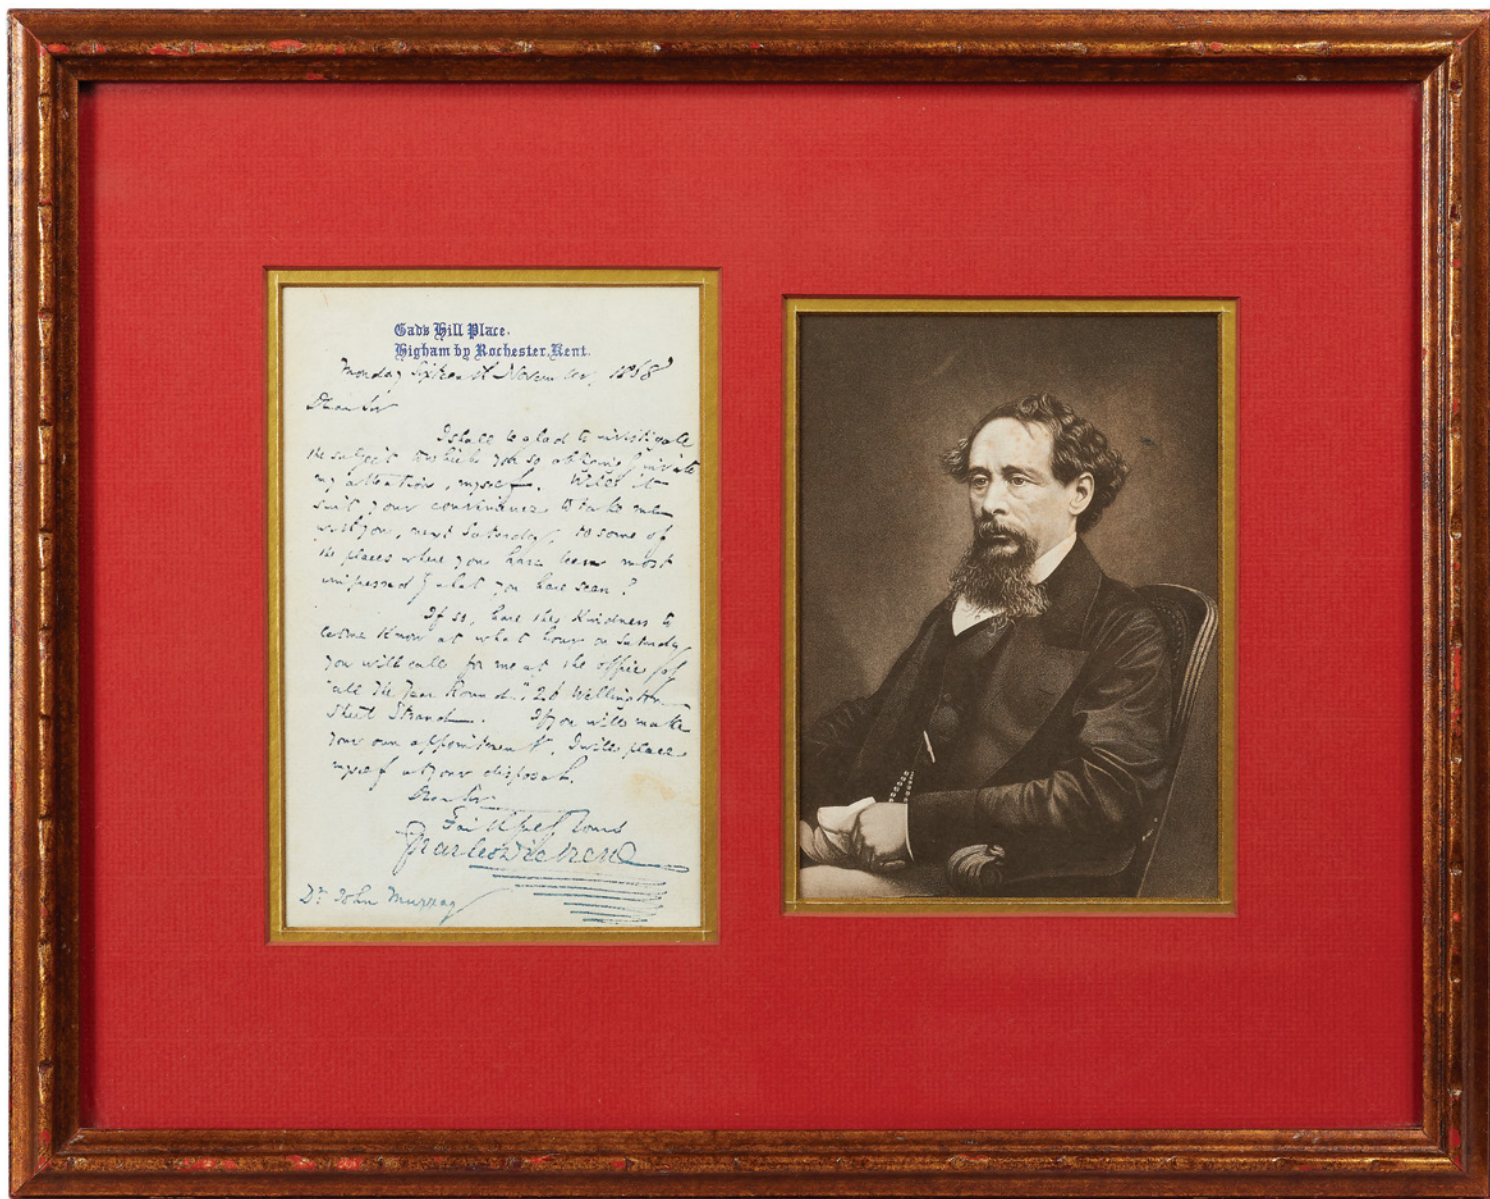 Gad's Hill Place.
Higham by Rochester, Kent.
Monday Sixteenth November, 1868
Dear Sir
I shall be glad to investigate
the subject to which you so obligingly invite
my attention, myself. Will it
suit your convenience to take me
with you, next Saturday, to some of
the places where you have been most
impressed by what you have seen?
If so, have the kindness to
let me know at what hour on Saturday
you will call for me at the office of
"All The Year Round." 26 Wellington
Street Strand. If you will make
your own appointment, I will place
myself at your disposal.
Dear Sir
Faithfully Yours
Charles Dickens
Dr. John Murray